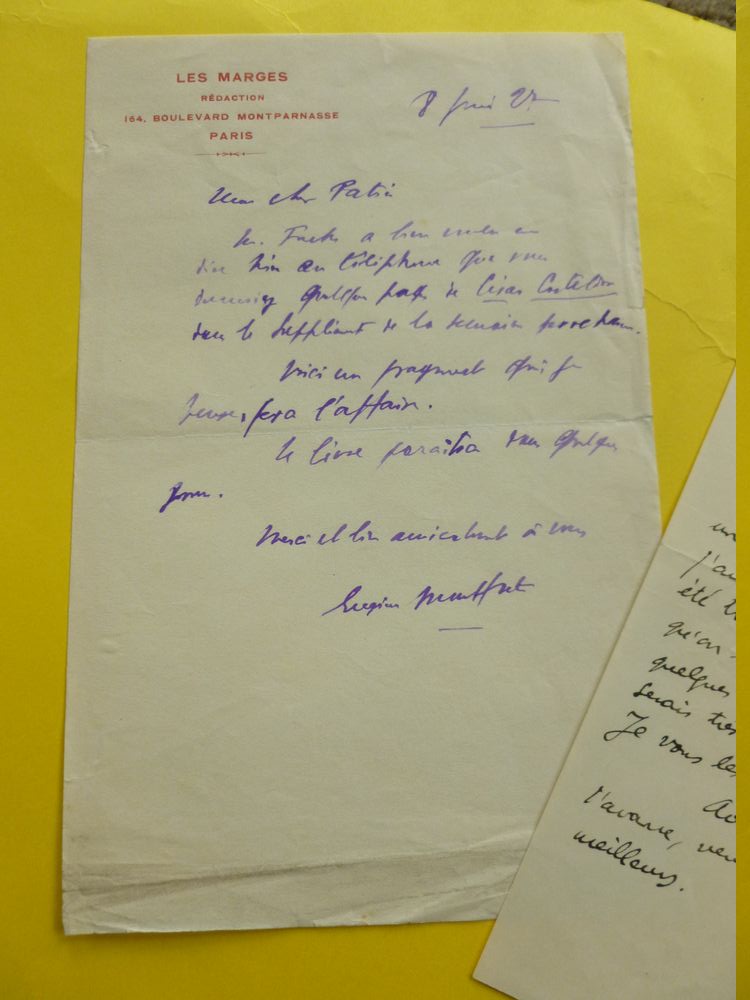 LES MARGES
RÉDACTION
164, BOULEVARD MONTPARNASSE
PARIS
8
Mon cher
M. a bien voulu me
dire au téléphone que vous
donneriez quelques pages de César
dans le Supplément de la semaine prochaine.
Voici un fragment qui je
pense, fera l'affaire.
Le livre paraîtra dans quelques
jours.
Merci et bien amicalement à vous
Eugène Montfort
un
j'au
été
qu'on
quelques
serais très
Je vous les
l'avance,
meilleurs.